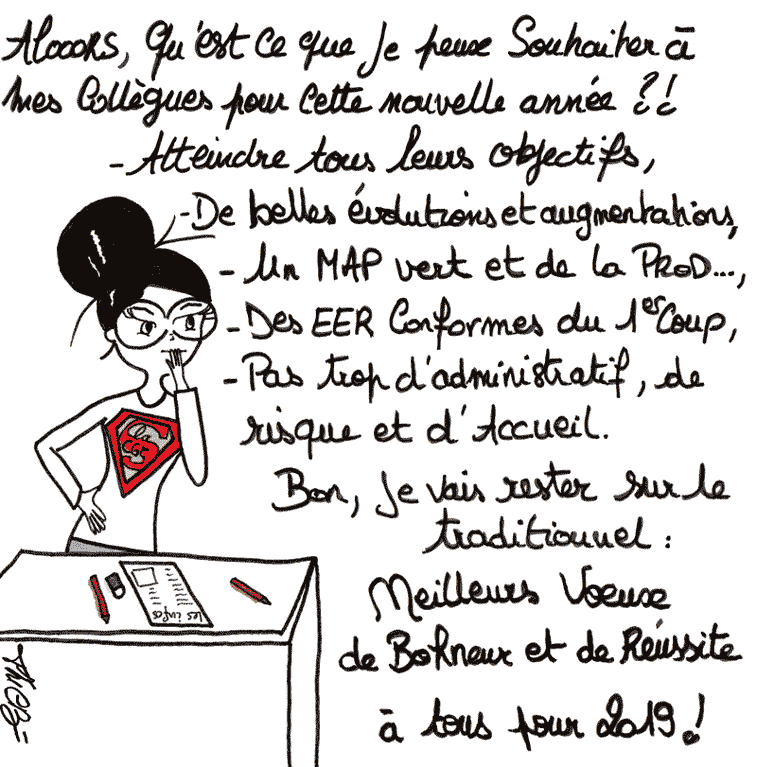 Alooors, Qu'est ce que je peux Souhaiter à
mes Collègues pour cette nouvelle année ?!
- Atteindre tous leurs objectifs,
- De belles évolutions et augmentations,
- Un MAP vert et de la PROD...,
- Des EER Conformes du 1er Coup,
- Pas trop d'administratif, de
risque et d'Accueil.
Bon, je vais rester sur le
traditionnel :
Meilleurs Voeux
de Bohneur et de Réussite
à tous pour 2019.!
les infos